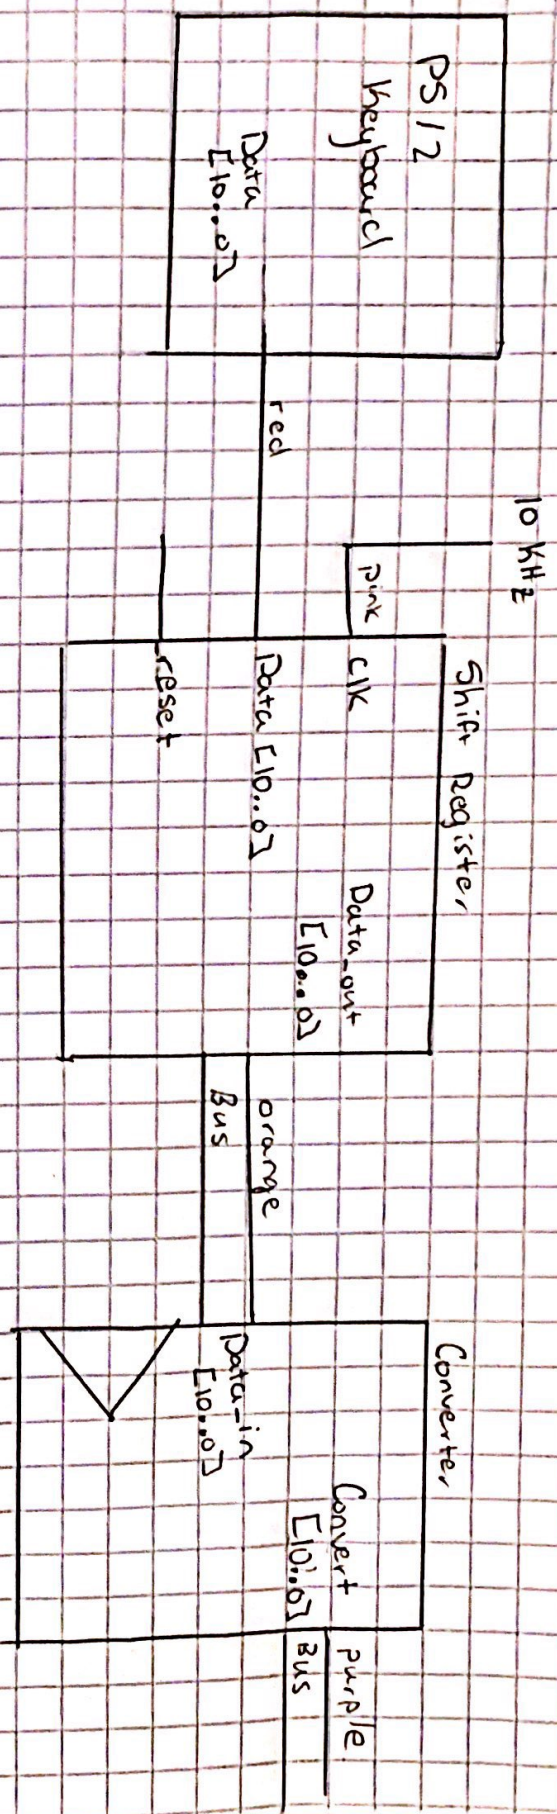 PS/2
Keyboard
Data
[10...0]
red
10 KHz
pink
Shift Register
clk
Data [10...0]
reset
Data_out
[10...0]
orange
Bus
Converter
Data_in
[10...0]
Convert
[10...0]
purple
Bus